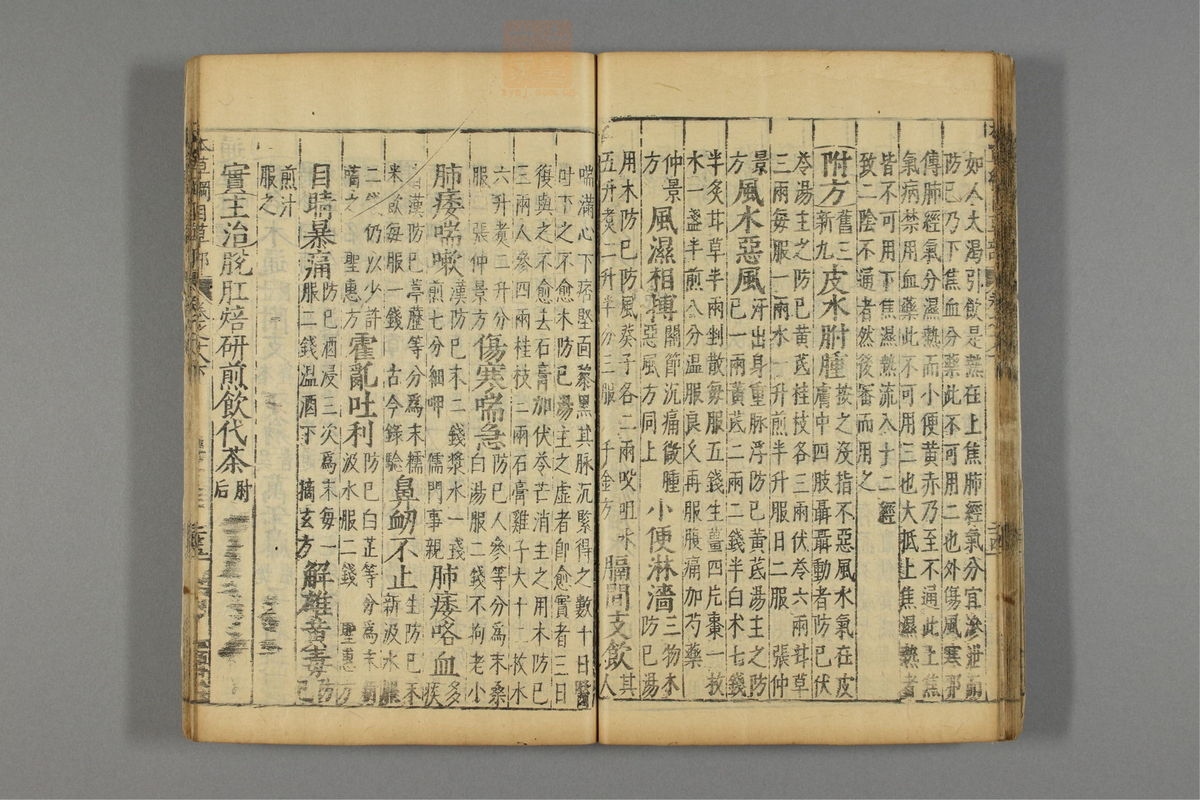 如人大渴引飲是熱在上焦肺經氣分宜滲泄而
防已乃下焦血分藥此不可用二也外傷風寒邪
傳肺經氣分濕熱而小便黄赤乃至不通此上焦
氣病禁用血藥此不可用三也大抵上焦濕熱者
皆不可用下焦濕熱流入十二經
致二陰不通者然後審而用之
附方舊三新九皮水胕腫按之没指不惡風水氣在皮
膚中四肢聶聶動者防已伏
苓湯主之防已黄茋桂枝各三兩伏苓六兩甘草
二兩每服一兩水一升煎半升服日二服 張仲
景方風水惡風汗出身重脉浮防已黄茋湯主之防
已一兩黄茋二兩二錢半白术七錢
半炙甘草半兩剉散每服五錢生薑四片棗一枚
水一盞半煎八分温服良久再服腹痛加芍藥
仲景方風濕相搏關節沉痛微腫惡風方同上小便淋濇三物木防已湯
用木防已防風葵子各二兩㕮咀水
五升煮二升半分三服 千金方膈間支飲其人
喘滿心下痞堅面黎黑其脉沉緊得之數十日醫
吐下之不愈木防已湯主之虛者卽愈實者三日
復與之不愈去石膏加伏苓芒消主之用木防已
三兩人參四兩桂枝二兩石膏雞子大十二枚水
六升煮二升分服 張仲景方傷寒喘急防已人參等分為末桑
白湯服二錢不拘老小
肺痿喘嗽漢防已末二錢漿水一戔煎七分細呷 儒門事親肺痿咯血多痰
漢防已葶藶等分爲末糯
米飲每服一錢 古今錄驗鼻衂不止生防已末新汲水服
二錢仍以少許
㗜之 聖惠方霍亂吐利防已白芷等分爲末
汲水服二錢 聖惠方
目睛暴痛防已酒浸三次爲末每一
服二錢温酒下 摘玄方解雄黄毒防已
煎汁
服之
實主治脫肛焙研煎飲代茶肘后